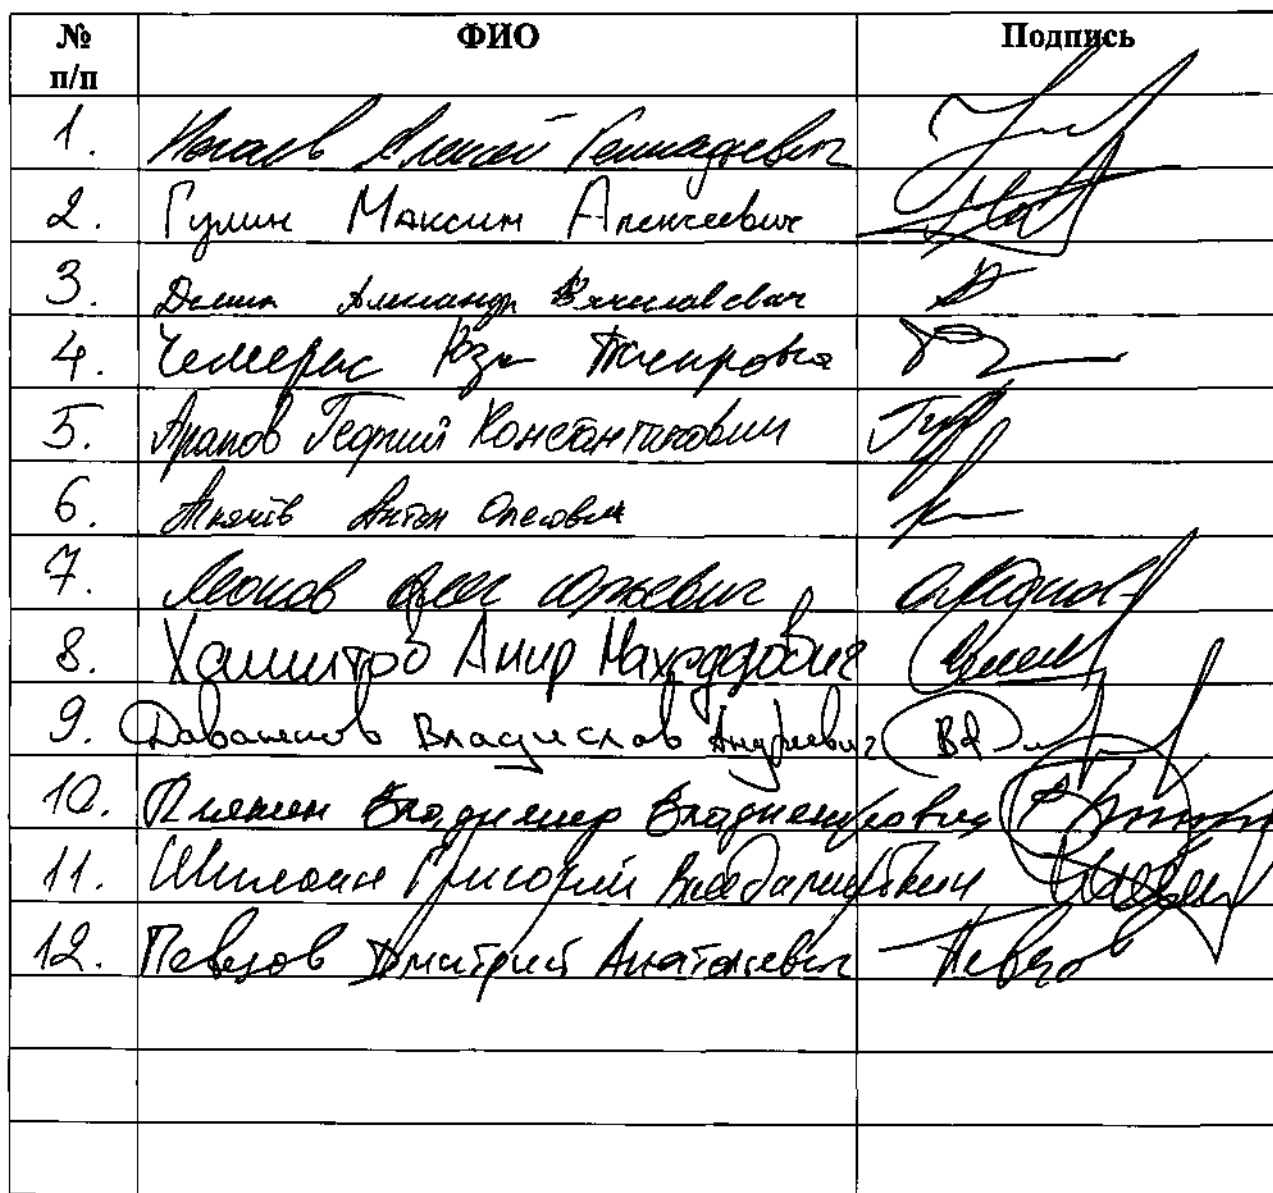 № п/п ФИО Подпись
1. Алексей Геннадьевич
2. Гулин Максим Алексеевич
3. Демин Александр Вячеславович
4. Чемерис Роза Таировна
5. Арапов Георгий Константинович
6. Ткачёв Антон Олегович
7. Леонов Олег Юрьевич
8. Хамитов Амир Махсудович
9. Даванков Владислав Андреевич
10. Плякин Владимир Владимирович
11. Шилкин Григорий Владимирович
12. Певцов Дмитрий Анатольевич Певцов